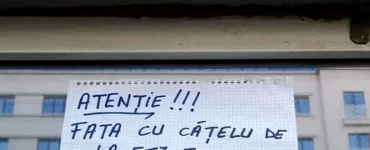 ATENȚIE!!!
FATA CU CĂȚELU DE
LA ETJ